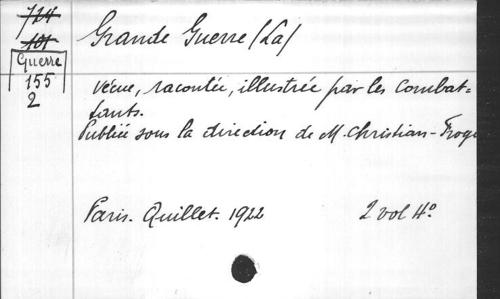 724
101
Guerre
155
2
Grande Guerre (La)
vécue, racontée, illustrée par les Combat=
tants.
Publiée sous la direction de M. Christian-Frogé
Paris. Quillet. 1922 2 vol 4°